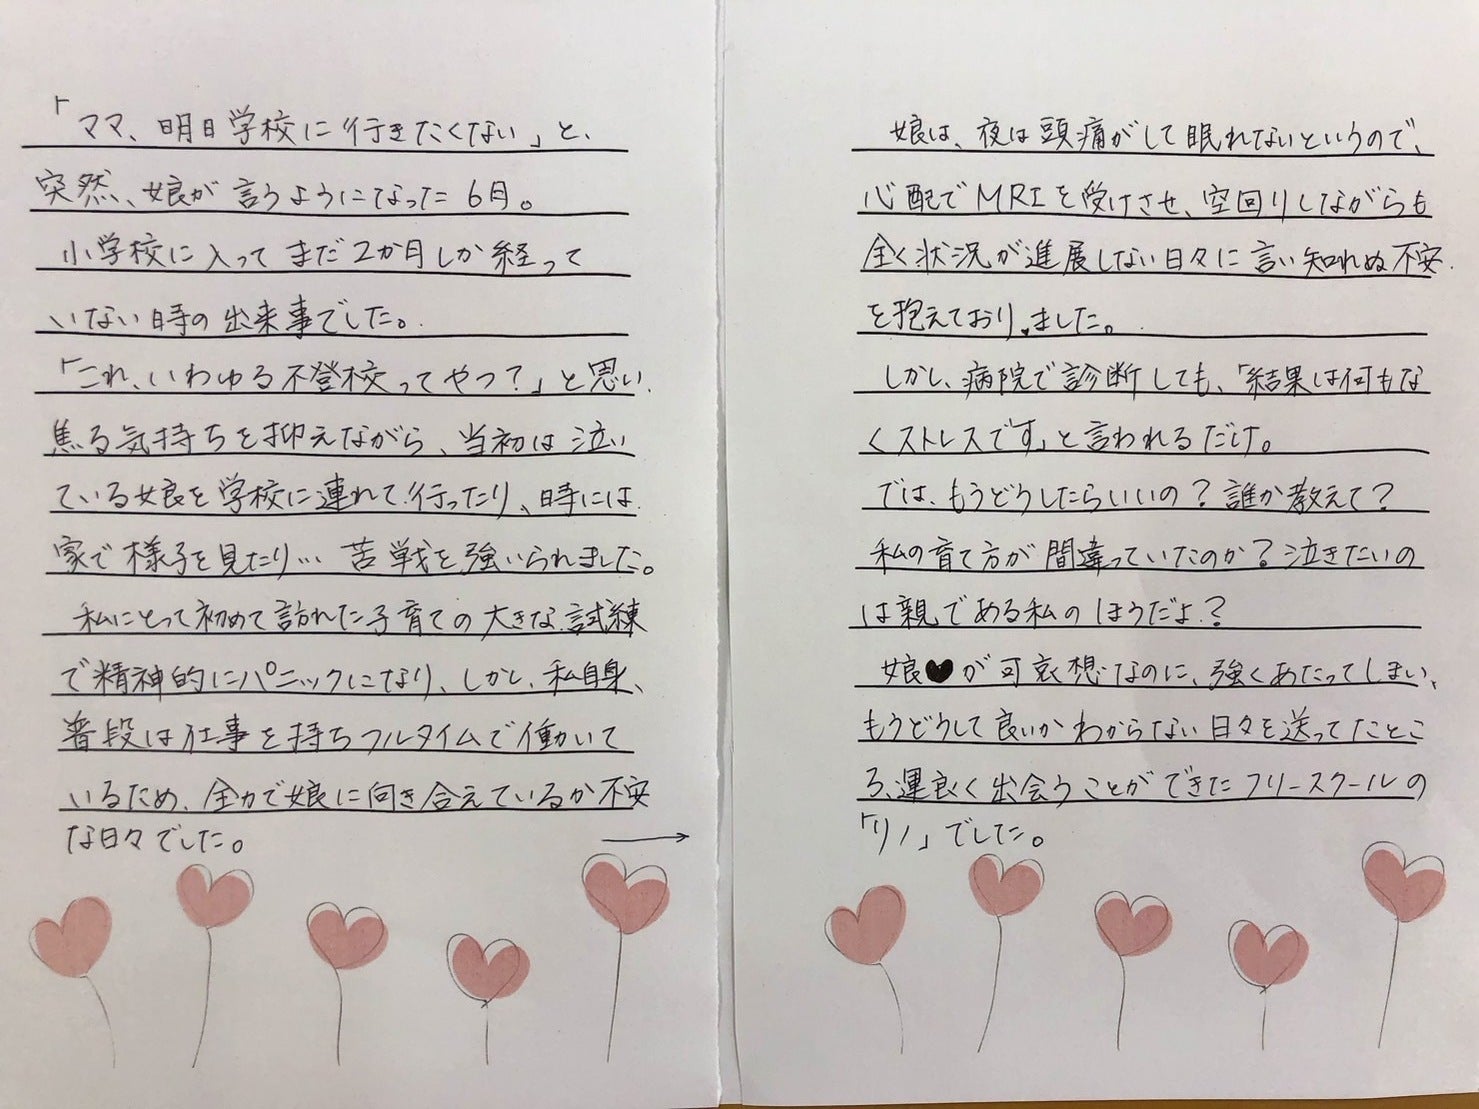 「ママ、明日学校に行きたくない」と、
突然、娘が言うようになった6月。
小学校に入ってまだ2か月しか経って
いない時の出来事でした。
「これ、いわゆる不登校ってやつ？」と思い、
焦る気持ちを抑えながら、当初は泣い
ている娘を学校に連れて行ったり、時には
家で様子を見たり…苦戦を強いられました。
私にとって初めて訪れた子育ての大きな試練
で精神的にパニックになり、しかし、私自身、
普段は仕事を持ちフルタイムで働いて
いるため、全力で娘に向き合えているか不安
な日々でした。
→
娘は、夜は頭痛がして眠れないというので、
心配でMRIを受けさせ、空回りしながらも
全く状況が進展しない日々に言い知れぬ不安
を抱えておりました。
しかし、病院で診断しても、「結果は何もな
くストレスです」と言われるだけ。
では、もうどうしたらいいの？誰か教えて？
私の育て方が間違っていたのか？泣きたいの
は親である私のほうだよ？
娘が可哀想なのに、強くあたってしまい、
もうどうして良いかわからない日々を送ってたとこ
ろ、運良く出会うことができたフリースクールの
「リノ」でした。